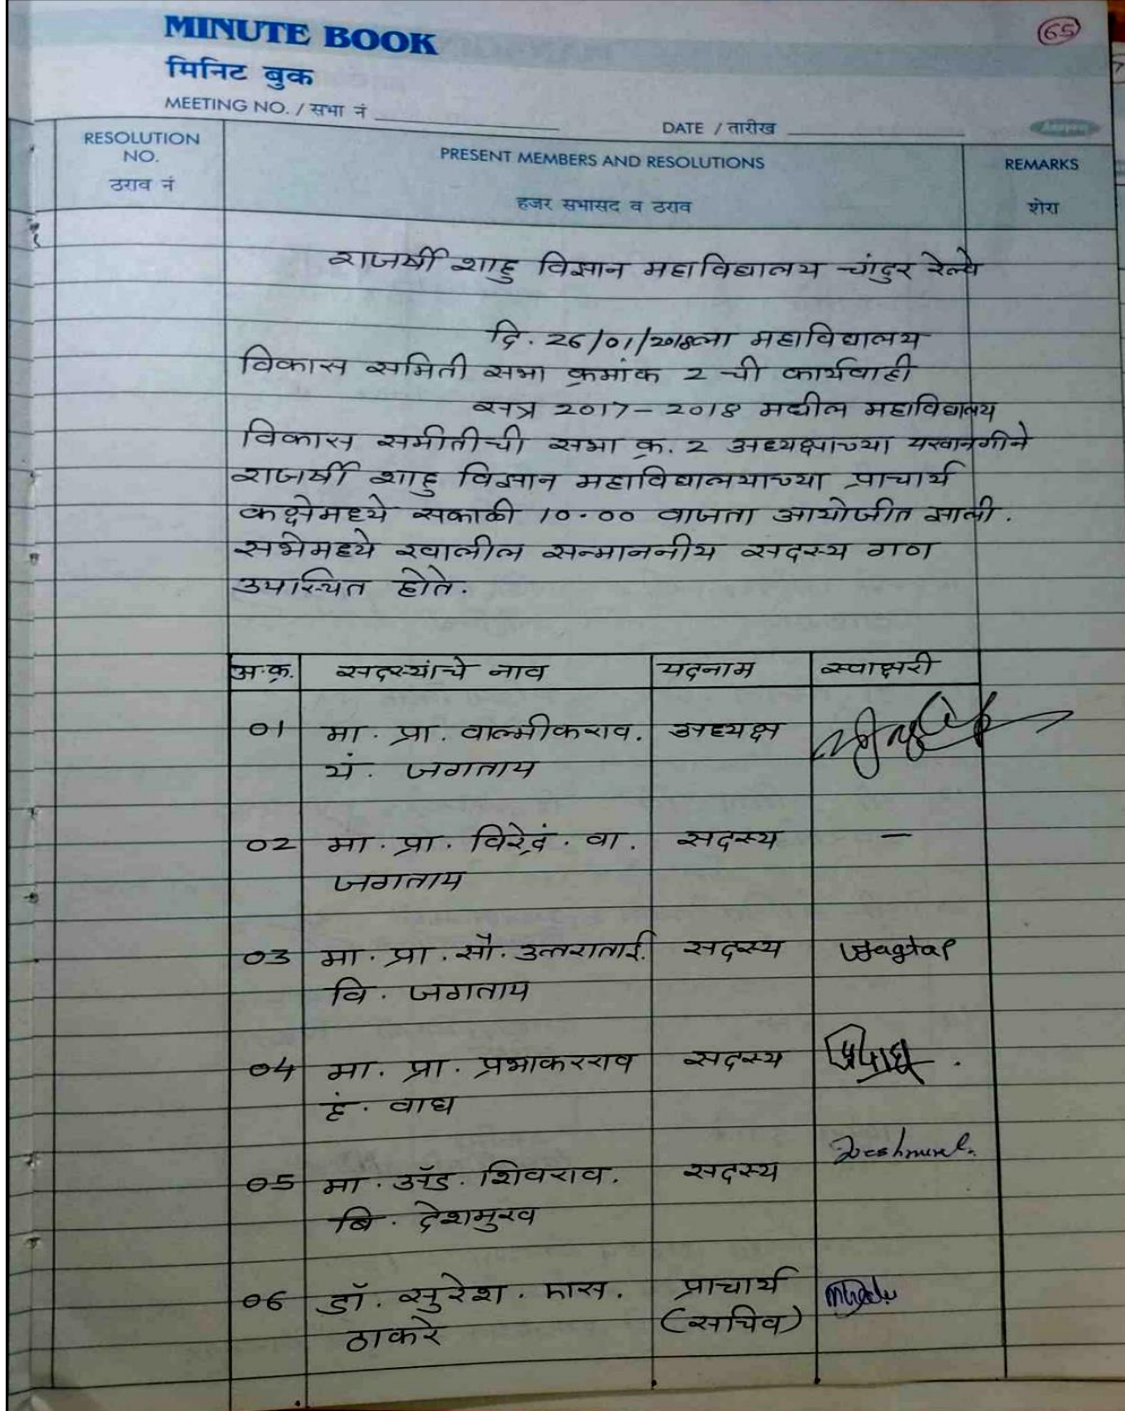 65
MINUTE BOOK
मिनिट बुक
MEETING NO. / सभा नं
DATE / तारीख
RESOLUTION NO. ठराव नं
PRESENT MEMBERS AND RESOLUTIONS
हजर सभासद व ठराव
REMARKS शेरा
राजर्षी शाहु विज्ञान महाविद्यालय चांदुर रेल्वे
दि. 26/01/2018ला महाविद्यालय
विकास समिती सभा क्रमांक 2 ची कार्यवाही
सत्र 2017-2018 मधील महाविद्यालय
विकास समीतीची सभा क्र. 2 अध्यक्षाच्या परवानगीने
राजर्षी शाहु विज्ञान महाविद्यालयाच्या प्राचार्य
कक्षेमध्ये सकाळी 10.00 वाजता आयोजीत झाली.
सभेमध्ये खालील सन्माननीय सदस्य गण
उपास्थित होते.
अ.क्र. सदस्यांचे नाव पदनाम स्वाक्षरी
01 मा. प्रा. वाल्मीकराव. अध्यक्ष
पं. जगताप
02 मा. प्रा. विरेद्रं. वा. सदस्य –
जगताप
03 मा. प्रा. सौ. उत्तराताई. सदस्य Vjagtap
वि. जगताप
04 मा. प्रा. प्रभाकरराव सदस्य
हं. वाघ
05 मा. अॅड. शिवराव. सदस्य Deshmukh
बि. देशमुख
06 डॉ. सुरेश. एस. प्राचार्य
ठाकरे (सचिव)